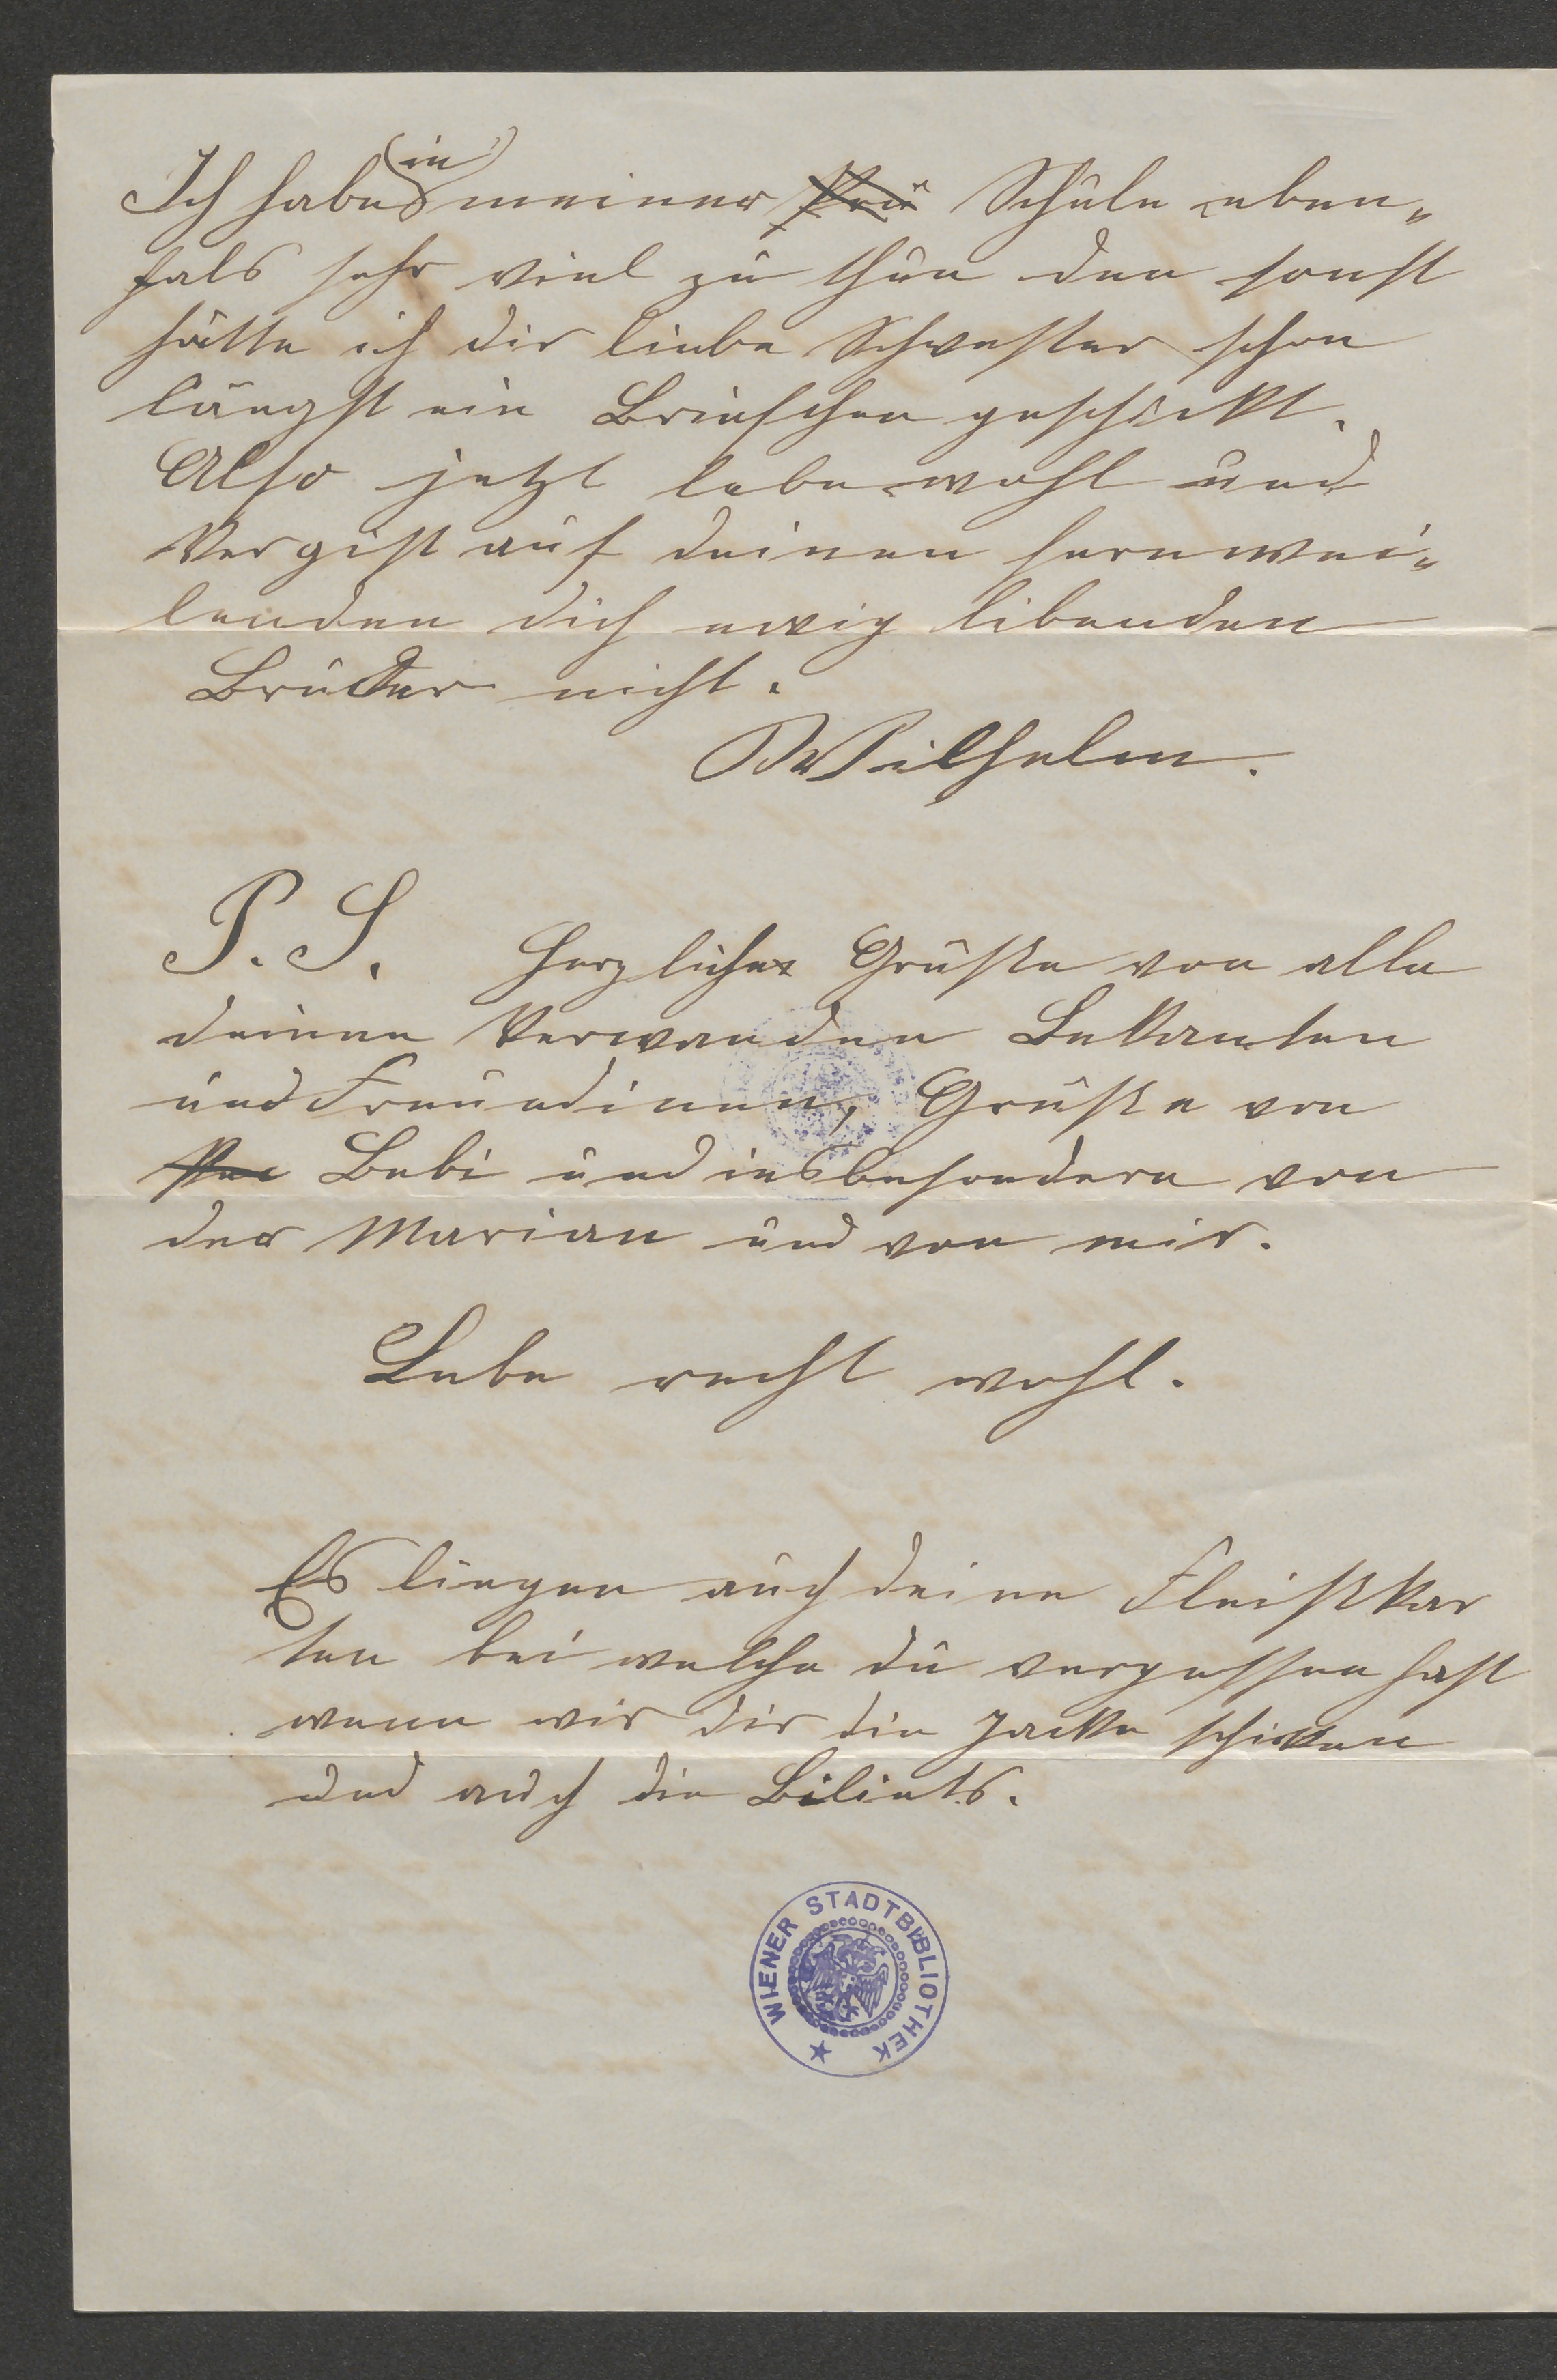 Ich habe (in) meiner Schule eben„
fals sehr viel zu thun den sonst
hätte ich dir liebe Schwester schon
längst ein Briefchen geschickt.
Also jetzt lebe wohl und
Vergist auf deinen fernwei„
lenden dich ewig libenden
Bruder nicht.
Wilhelm.
P. S. Herzliche Grüße von alle
deinen Verwanden Bekanten
und Freundinen, Grüße von
Bebi und insbesondere von
der Marian und von mir.
Lebe recht wohl.
Es liegen auch deine Fleißkar
ten bei welche du vergessen hast
wenn wir dir die Jacke schicken
und auch die Biliets.
WIENER STADTBIBLIOTHEK